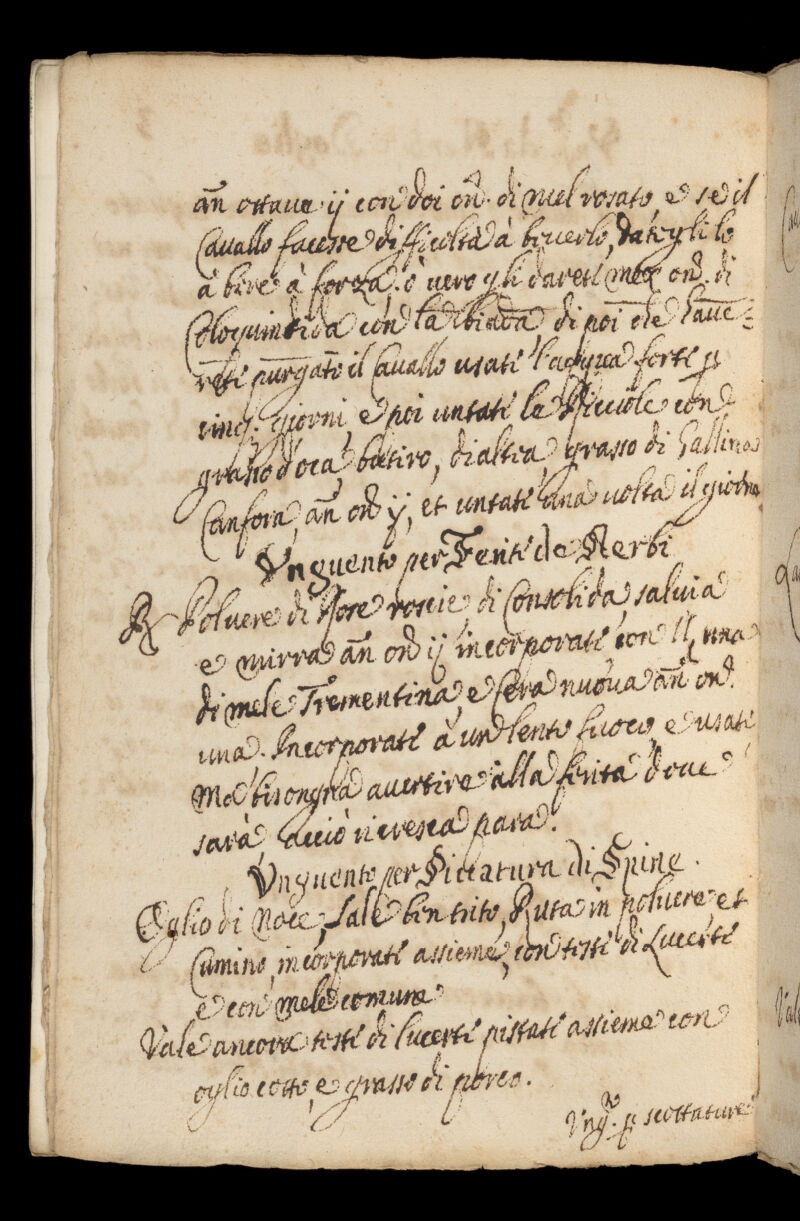 añ ottaue ij con doi onȝ. di miel rosato, e se il
Cauallo facesse difficoltà à beuerlo, datigli lo
à bere à forza. ò uero gli dareti mezᵃ onȝ. di
Coloquintida con la biada, di poi che haue=
reti purgato il Cauallo usati l'acqua forti p
cinq. giorni, e poi untati le con
grasso d'oca, butiro, dialtea, grasso di Gallina
Canfora, añ onȝ ij, et untati una uolta il giorno
Vnguento per Feriti de Nerbi
℞ Poluere di Rose roscie, di Consolida, saluia
e mirra añ onȝ ij incorporati con ll. una
di mele Trementina, e Cera nuoua añ onȝ.
una. Incorporati à un lento fuoco, e usati
Ma bisongra auertire alla ferita doue
sarà acciò ricresca para.
Vnguento per Siccatura di Spine.
Oglio di Noce, Sale ben trito, Ruta in poluere, et
Cumino, incorporati assieme, con testi di Lucerti
e con mele comune
Vale ancora testi di lucerti pistati assieme con
oglio cotto, e grasso di porco.
Vngᵗᵒ. p scottature